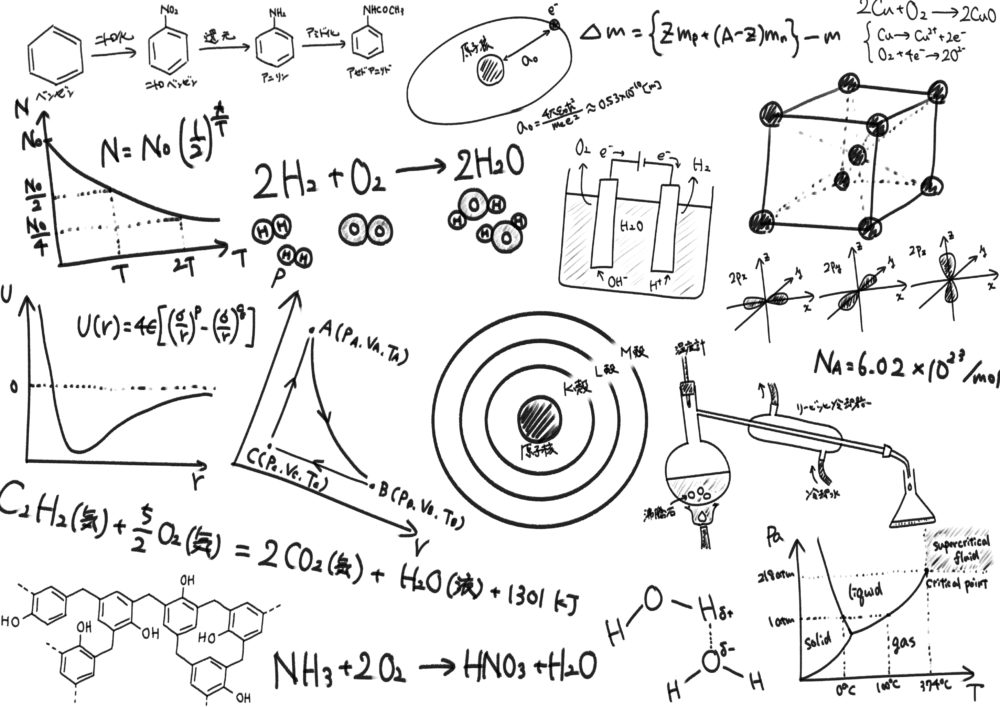 NO₂
NH₂
NHCOCH₃
ニトロ化
還元
アセチル化
ベンゼン
ニトロベンゼン
アニリン
アセトアニリド
e⁻
原子核
a₀
a₀ = 4πε₀ℏ²/mₑe² ≈ 0.53×10⁻¹⁰[m]
Δm = {Zmp + (A-Z)mn} - m
2Cu + O₂ → 2CuO
Cu → Cu²⁺ + 2e⁻
O₂ + 4e⁻ → 2O²⁻
N
N₀
N₀/2
N₀/4
T
2T
T
N = N₀(1/2)^(t/T)
2H₂ + O₂ → 2H₂O
H H
H H
O O
H O H
H O H
O₂
e⁻ →
e⁻
H₂
H₂O
OH⁻
H⁺
2Px
z
y
x
2Py
z
y
x
2Pz
z
y
x
U
0
r
U(r) = 4ε[(σ/r)^p - (σ/r)^q]
P
A(PA, VA, TA)
C(Pc, Vc, Tc)
B(PB, VB, TB)
V
M殻
L殻
K殻
原子核
NA = 6.02 × 10²³/mol
温度計
リービッヒ冷却器
冷却水
沸騰石
C₂H₂(気) + 5/2 O₂(気) = 2CO₂(気) + H₂O(液) + 1301 kJ
OH
HO
OH
OH
HO
OH
OH
NH₃ + 2O₂ → HNO₃ + H₂O
O
H
H δ+
O δ-
H
H
Pa
218atm
1atm
supercritical
fluid
critical point
liquid
solid
gas
0°C
100°C
374°C
T